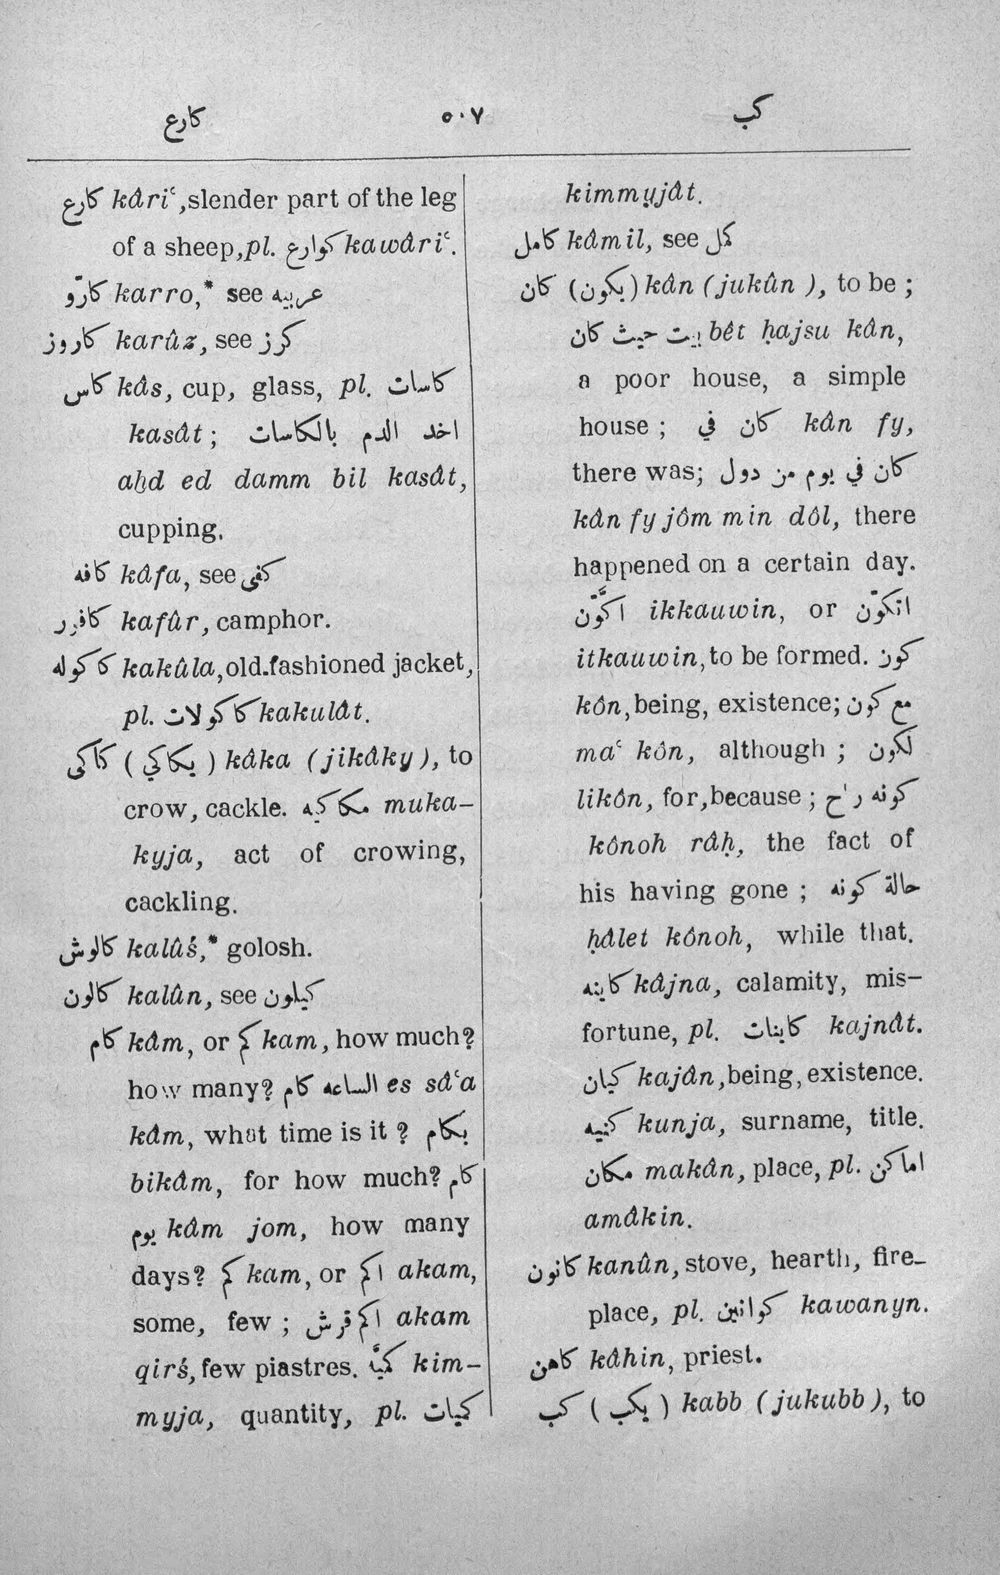 كارع ٥٠٧ كب
كارع kâriʿ, slender part of the leg
of a sheep, pl. كوارع kawâriʿ.
كارّو karro,* see عربيه
كاروز karûz, see كرز
كاس kâs, cup, glass, pl. كاسات
kasât; اخد الدم بالكاسات
aḫd ed damm bil kasât,
cupping.
كافه kâfa, see كفى
كافور kafûr, camphor.
كاكوله kakûla, old-fashioned jacket,
pl. كاكولات kakulât.
كاكى (يكاكي) kâka (jikâky), to
crow, cackle. مكاكيه muka-
kyja, act of crowing,
cackling.
كالوش kalûś,* golosh.
كالون kalûn, see كيلون
كام kâm, or كم kam, how much?
how many? الساعه كام es sâʿa
kâm, what time is it? بكام
bikâm, for how much? كام
يوم kâm jom, how many
days? كم kam, or اكم akam,
some, few; اكم قرش akam
qirś, few piastres. كميّة kim-
myja, quantity, pl. كميات
kimmyjât.
كامل kâmil, see كمل
كان (يكون) kân (jukûn), to be;
بيت حيث كان bêt ḥajsu kân,
a poor house, a simple
house; كان في kân fy,
there was; كان في يوم من دول
kân fy jôm min dôl, there
happened on a certain day.
اكّوّن ikkauwin, or اتكوّن
itkauwin, to be formed. كون
kôn, being, existence; مع كون
maʿ kôn, although; لكون
likôn, for, because; كونه راح
kônoh râḥ, the fact of
his having gone; حالة كونه
ḥâlet kônoh, while that.
كاينه kâjna, calamity, mis-
fortune, pl. كاينات kajnât.
كيان kajân, being, existence.
كنيه kunja, surname, title.
مكان makân, place, pl. اماكن
amâkin.
كانون kanûn, stove, hearth, fire-
place, pl. كوانين kawanyn.
كاهن kâhin, priest.
كب (يكب) kabb (jukubb), to